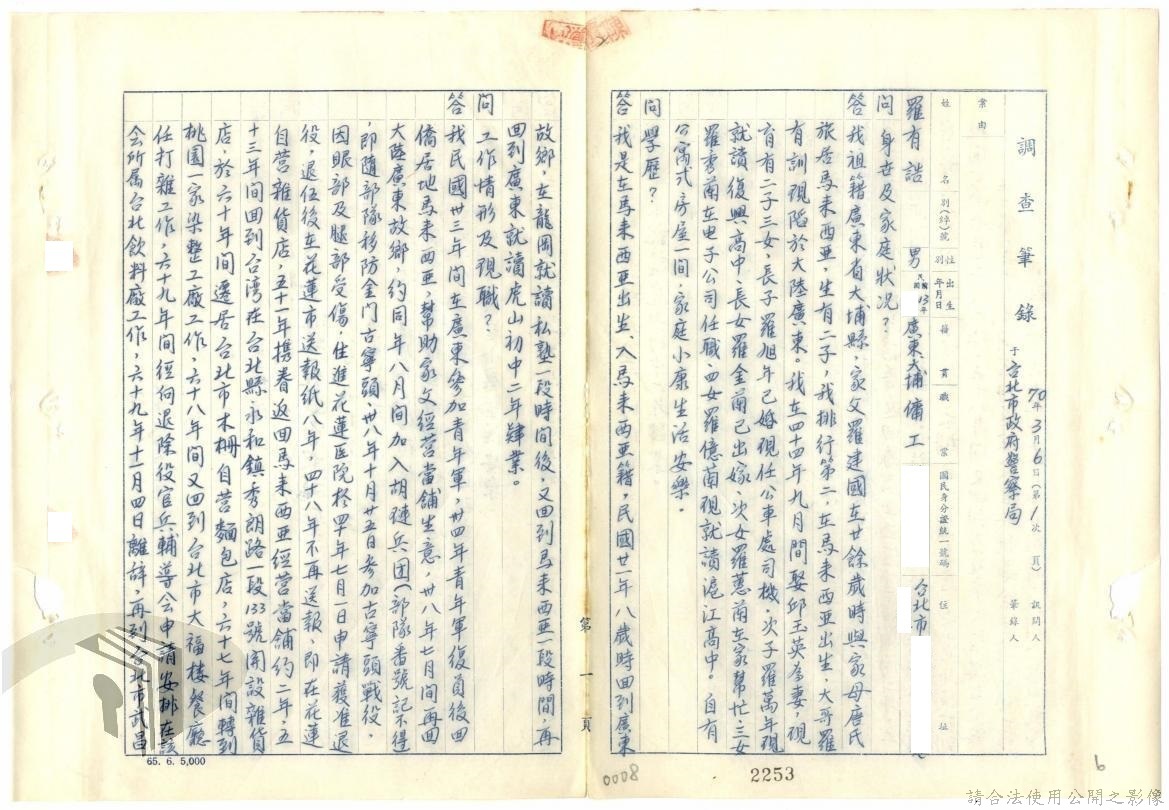 調查筆錄
70年3月6日(第1次 頁)
于台北市政府警察局
訊問人
筆錄人
案由
姓名
別(綽)號
性別
出生年月日
籍貫
職業
國民身分證統一號碼
住址
羅有誥
男
民國13年
廣東大埔
傭工
台北市
問 身世及家庭狀況?
答 我祖籍廣東省大埔縣,家父羅建國在廿餘歲時與家母唐氏
旅居馬來西亞,生有二子,我排行第二,在馬來西亞出生,大哥羅
有訓現陷於大陸廣東。我在四十四年九月間娶邱玉英為妻,現
育有二子三女,長子羅旭年已婚現任公車處司機,次子羅萬年現
就讀復興高中,長女羅金蘭已出嫁,次女羅蕙蘭在家幫忙,三女
羅秀蘭在电子公司任職,四女羅億蘭現就讀滬江高中。自有
公寓式房屋一間,家庭小康生活安樂。
問 學歷?
答 我是在馬來西亞出生,入馬來西亞籍,民國廿一年八歲時回到廣東
故鄉,在龍岡就讀私塾一段時間後,又回到馬來西亞一段時間,再
回到廣東就讀虎山初中二年肄業。
問 工作情形及現職?
答 我民國卅三年間在廣東參加青年軍,卅四年青年軍復員後回
僑居地馬來西亞,幫助家父經營當舖生意,卅八年七月間再回
大陸廣東故鄉,約同年八月間加入胡璉兵团(部隊番號記不得)
,即隨部隊移防金门古寧頭,卅八年十月廿五日參加古寧頭戰役,
因眼部及腿部受傷,住進花蓮医院,於四十年七月一日申請獲准退
役,退伍後在花蓮市送報紙八年,四十八年不再送報,即在花蓮
自营雜貨店,五十一年携眷返回馬來西亞經营當舖約二年,五
十三年間回到台湾在台北縣永和鎮秀朗路一段133號開設雜貨
店,於六十年間遷居台北市木柵自营麵包店,六十七年間轉到
桃園一家染整工廠工作,六十八年間又回到台北市大福楼餐廳
任打雜工作,六十九年間徑向退除役官兵輔導会申請安排在該
会所属台北飲料廠工作,六十九年十一月四日離辞,再到台北市武昌
第一頁
65. 6. 5,000
0008
2253
6
請合法使用公開之影像